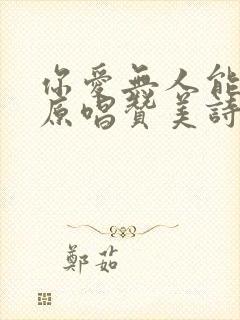 你愛無人能
原唱贊美詩
鄭茹